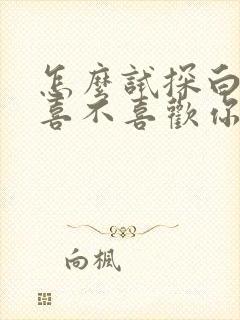 怎麼試探白
喜不喜歡你
向楓